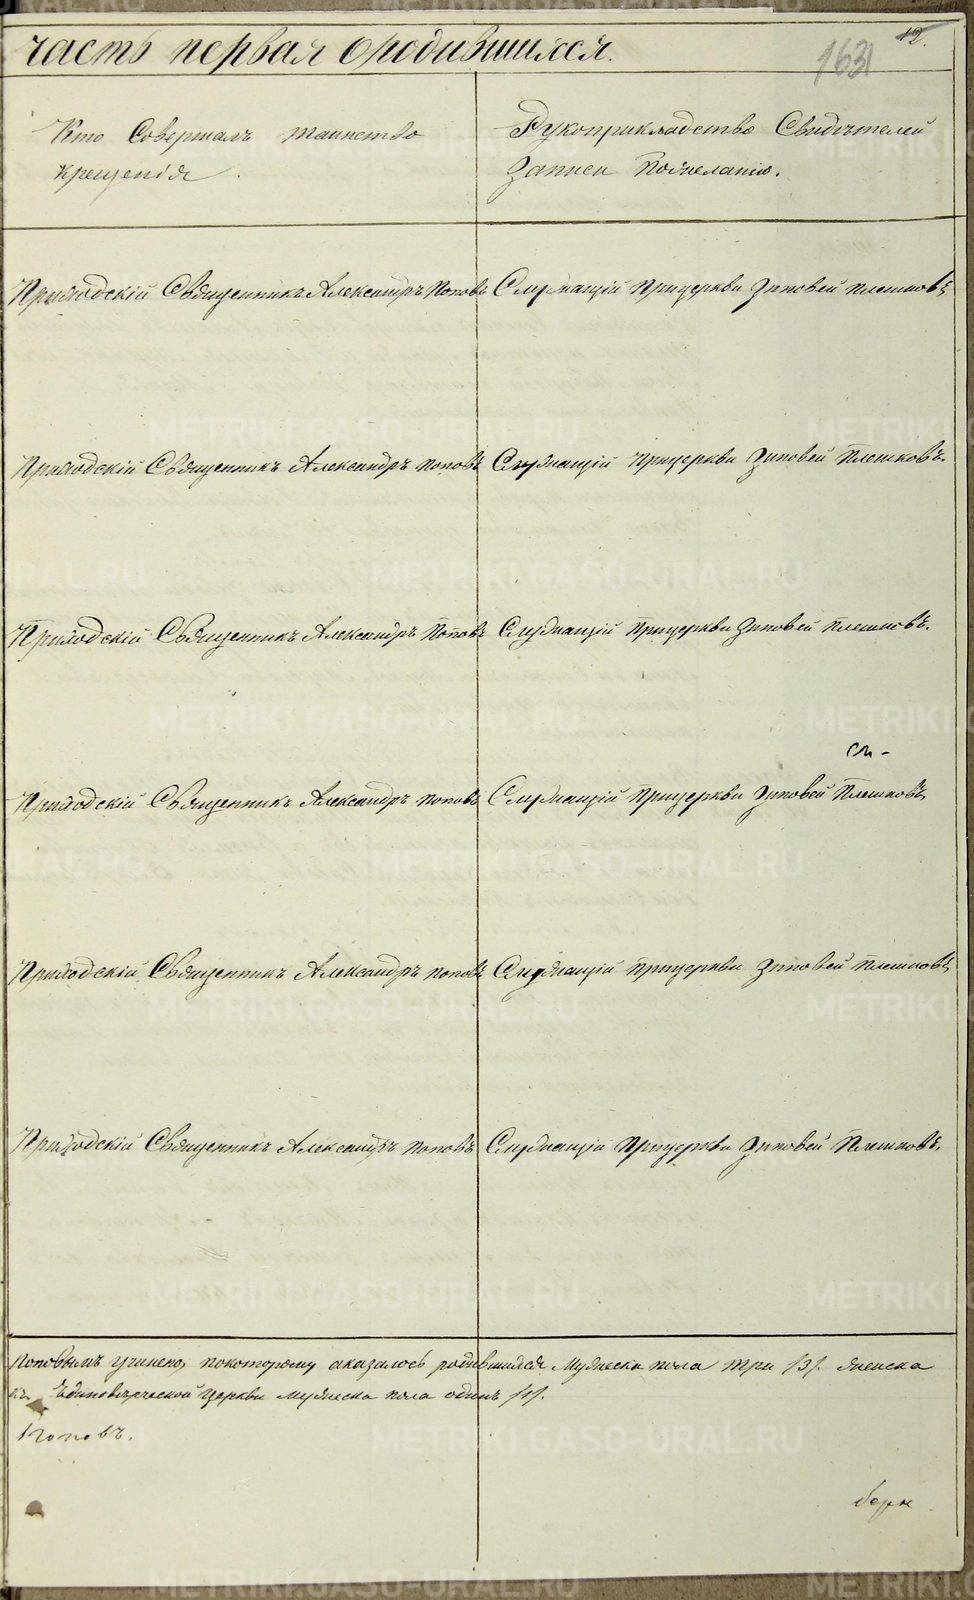 часть первая о родившихся.
12.
1631
Кто Совершалъ таинство
крещенія.
Рукоприкладство Свидѣтелей
Записи По желанію.
Приходскій Священникъ Александръ Поповъ Служащій при церкви Зиновей Плешковъ,
Приходскій Священникъ Александръ Поповъ Служащій при церкви Зиновей Плешковъ.
Приходскій Священникъ Александръ Поповъ Служащій при церкви Зиновей Плешковъ.
Приходскій Священникъ Александръ Поповъ Служащій при церкви Зиновей Плешковъ,
Приходскій Священникъ Александръ Поповъ Служащій при церкви Зиновей Плешковъ,
Приходскій Священникъ Александръ Поповъ Служащій при церкви Зиновей Плешковъ.
Поповымъ учинено, по которому аказалось родившихся Мужеска пола три /3/. женска
Единовѣрческой Церкви мужеска пола одинъ /1/.
Поповъ.
METRIKI.GASO-URAL.RU